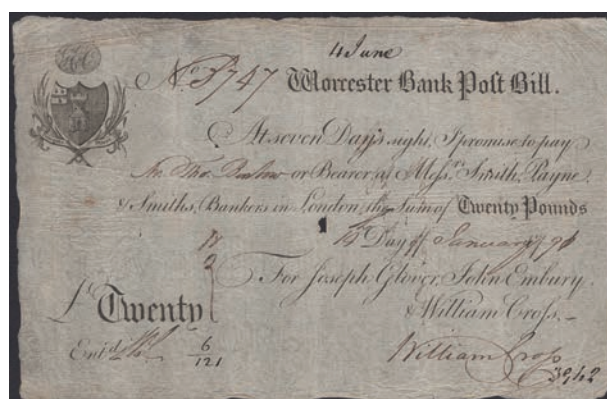 4 June
No 3747 Worcester Bank Post Bill.
At seven Days sight, I promise to pay
Mr. Thos. or Bearer, at Messrs. Smith, Payne,
& Smiths, Bankers in London, the Sum of Twenty Pounds
Day of January
For Joseph Glover, John Embury,
£ Twenty & William Cross.
Entd. 6/121 William Cross